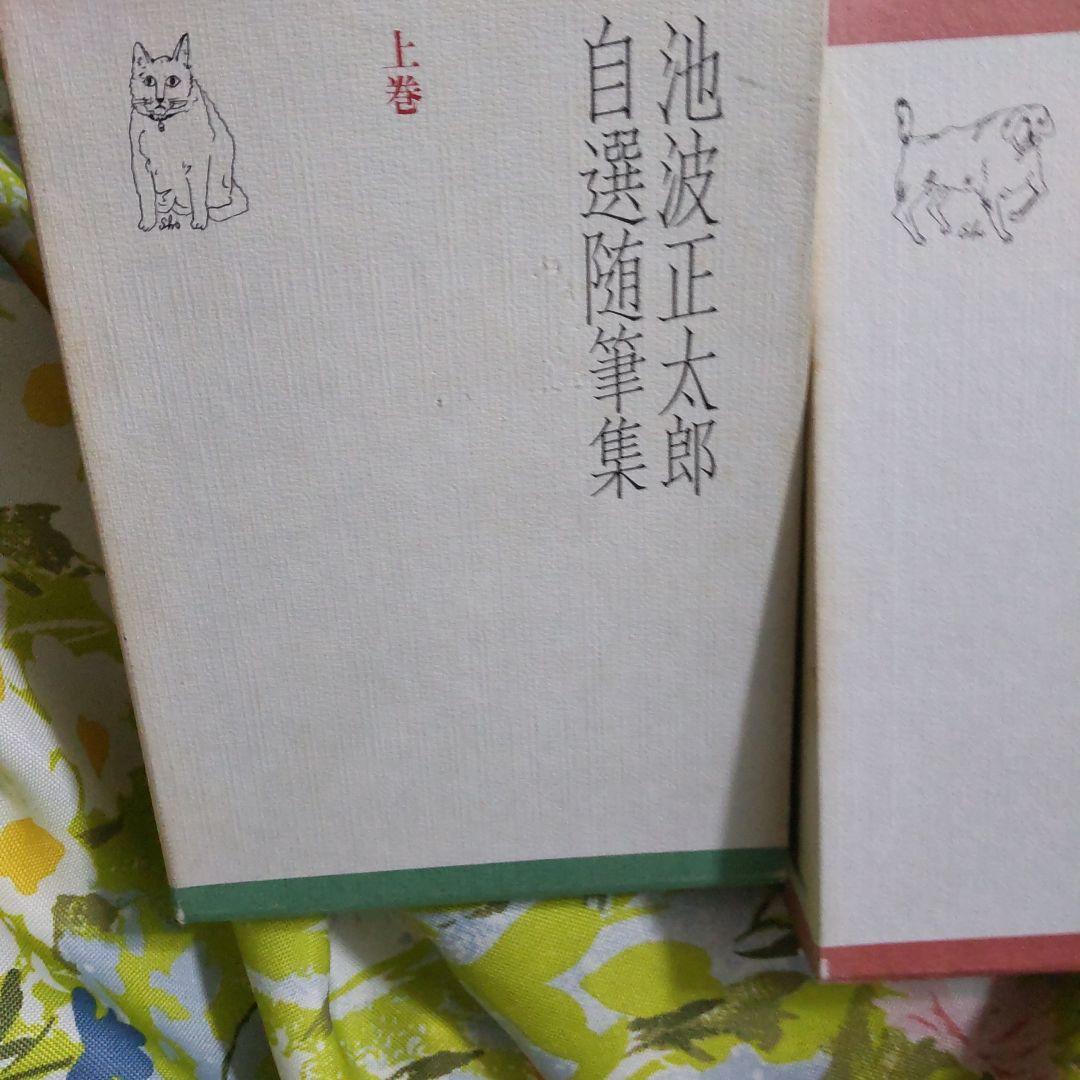 池波正太郎
自選随筆集
上巻
sho
sho